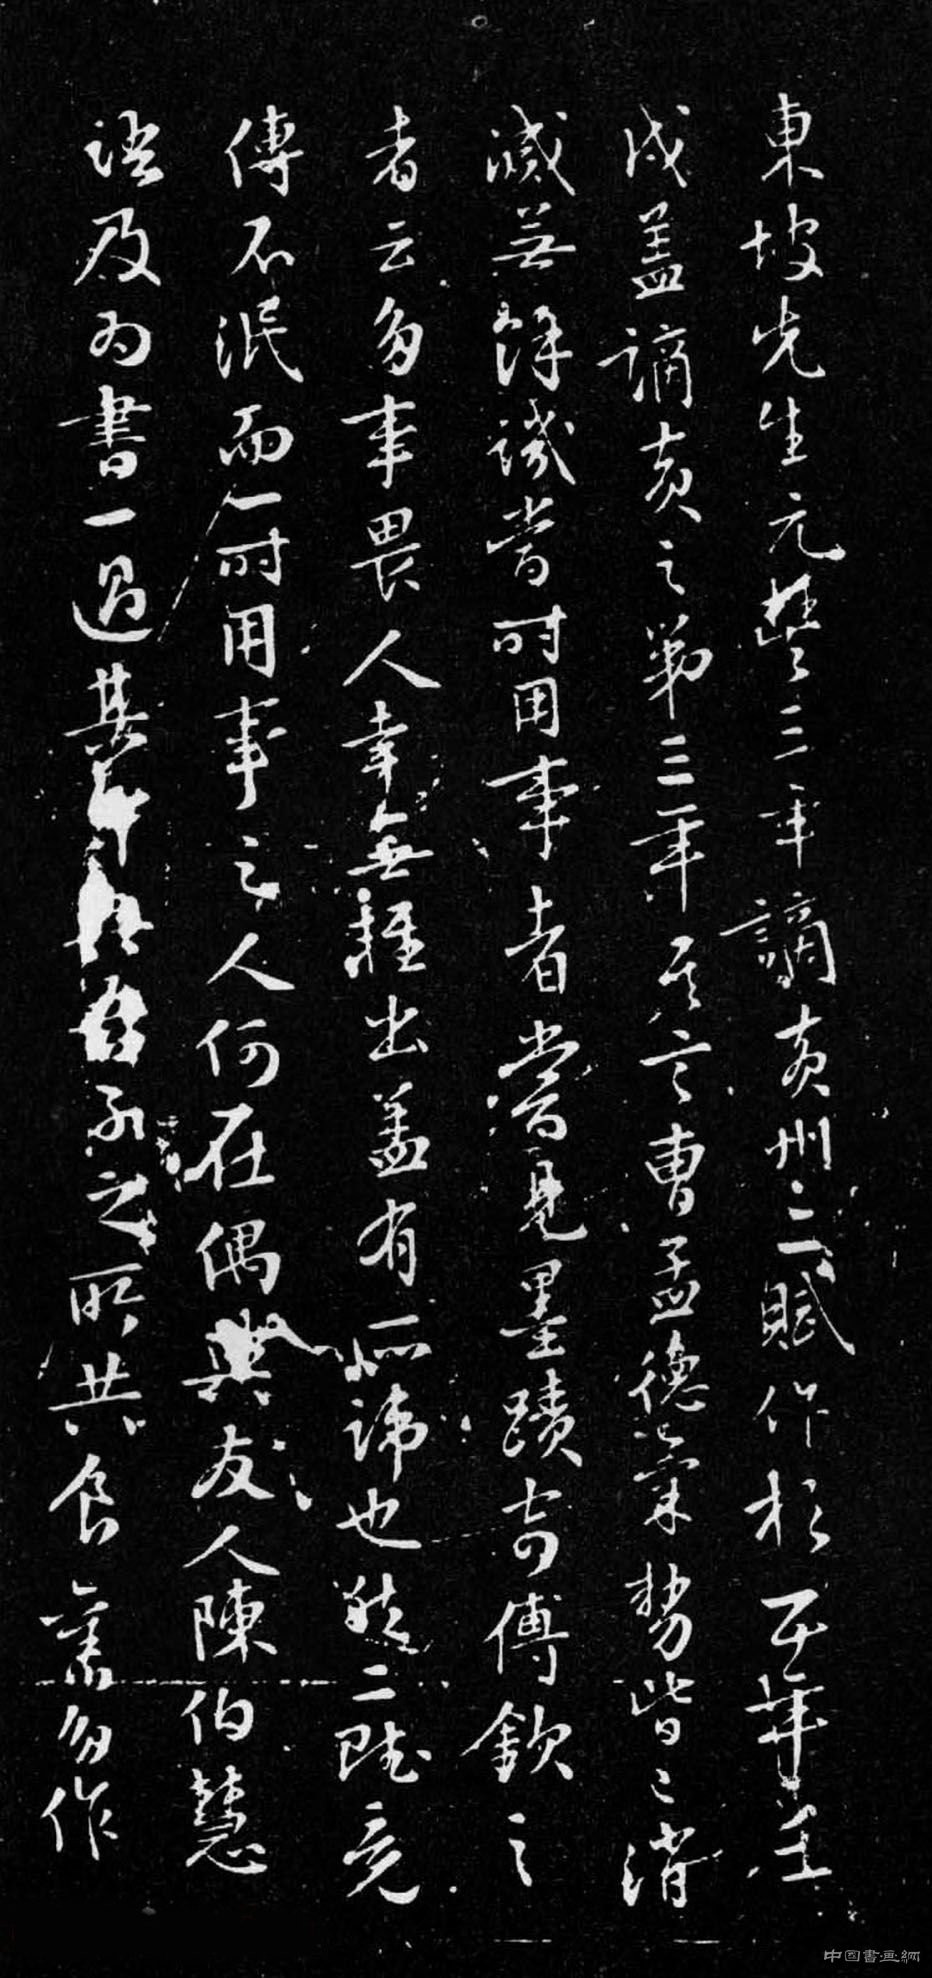 東坡先生元豐三年謫黃州二賦作於五年壬
戌蓋謫黃之第三年其言曹孟德氣勢皆已消
滅無餘譏當時用事者嘗見墨蹟寄傅欽之
者云多事畏人幸無輕出蓋有所諱也然二賦竟
傳不泯而一時用事之人何在偶與友人陳伯慧
語及為書一過其中與吾子之所共食舊多作
中国書画網